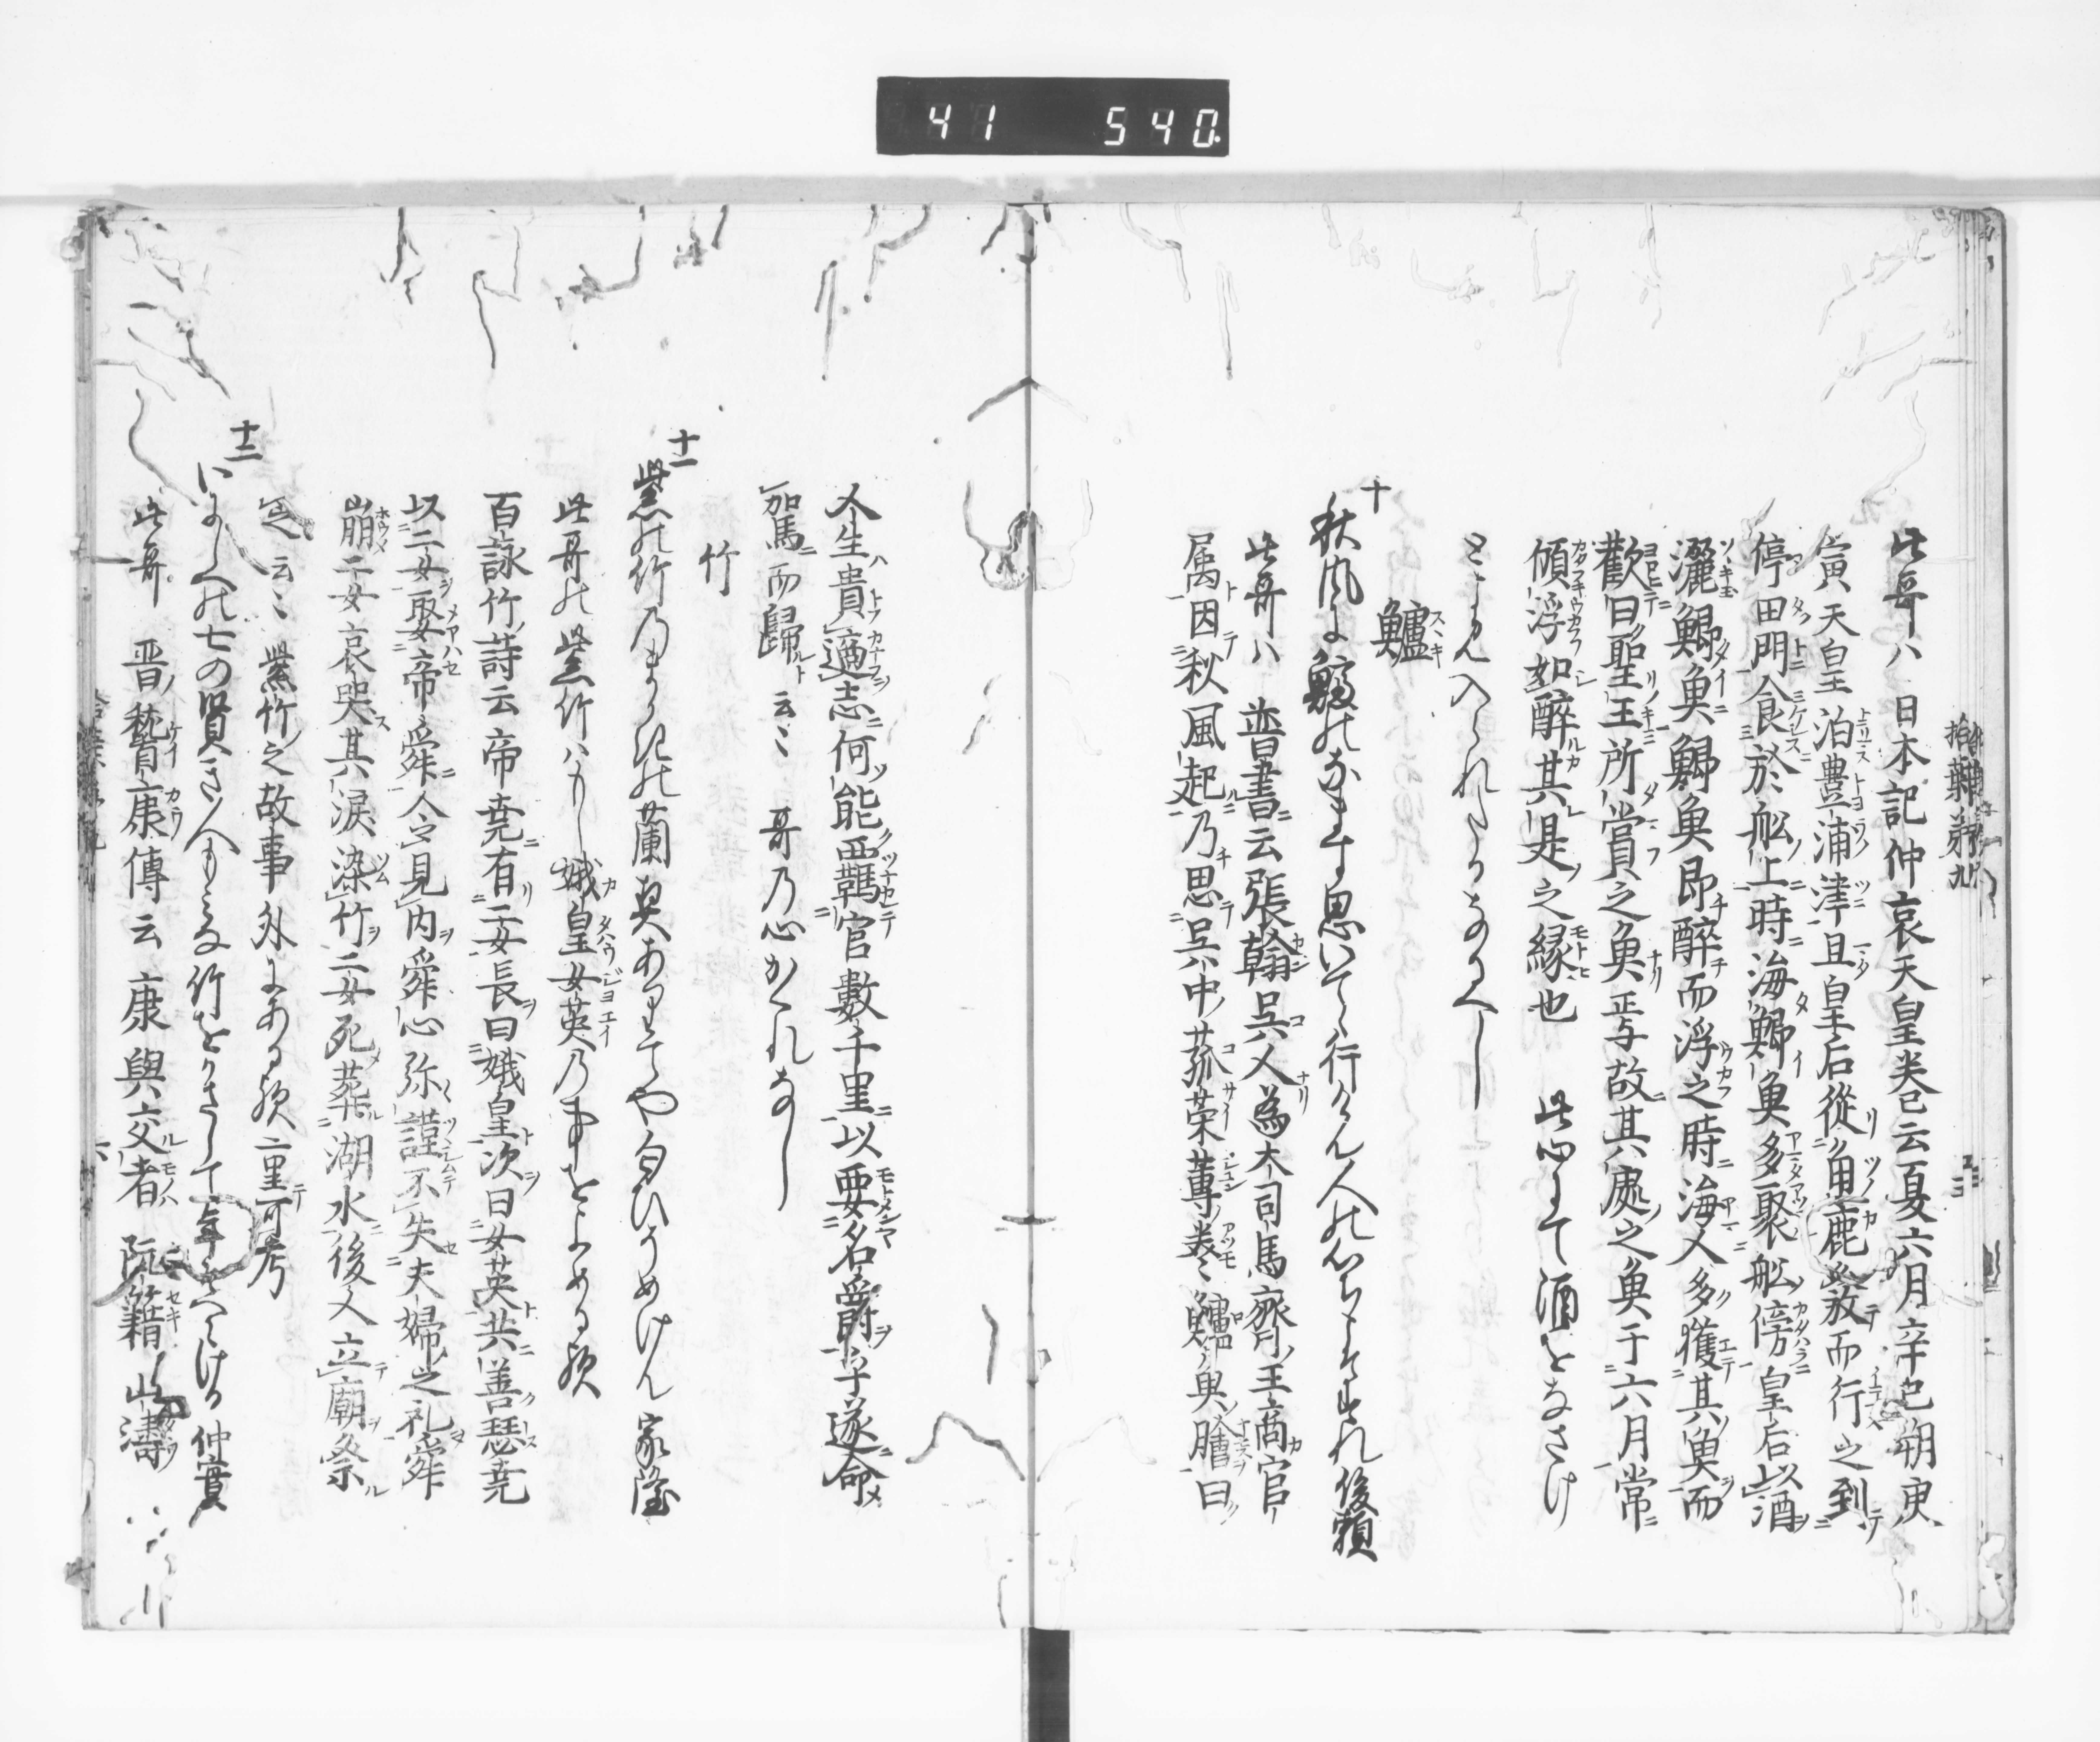 41 540
拾菓第九
此哥ハ 日本記仲哀天皇巻已云夏六月辛巳朔庚
寅天皇泊豊浦津且皇后從角鹿發而行之到
停田門食於舩上時海鯽魚多聚舩傍皇后以酒
灑鯽魚鯽魚即醉而浮之時海人多獲其魚而
歡曰聖王所賞之魚故其處之魚于六月常
傾浮如醉其是之縁也 此心にて酒をなさけ
とよみ入られたるなるへし
鱸
十
秋風に鱸のなます思いて行けん人の心ちこそすれ 俊頼
此哥ハ 晋書云張翰呉人為大司馬齊王冏官
属因秋風起乃思呉中菰菜蓴羹鱸魚膾曰
人生貴適志何能羈官數千里以要名爵乎遂命
駕而歸云〻 哥乃心かくれなし
竹
十一
紫の竹乃まかきの蘭奥あまりてや匂ひそめけん 家隆
此哥の紫竹ハもし娥皇女英乃事をよめる歟
百詠竹詩云帝堯有二女長曰娥皇次曰女英共善瑟堯
以二女娶帝舜令見内舜心弥謹不失夫婦之礼舜
崩二女哀哭其涙染竹二女死葬湖水後人立廟祭
之云〻 紫竹之故事外にある歟重可考
十二
いにしへの七の賢き人もみな竹をかさして年そへにける 仲實
此哥 晋嵆康傳云 康與交者阮籍山濤